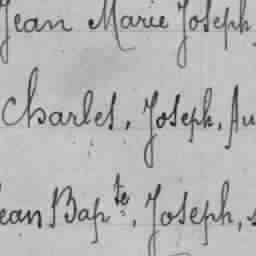 Jean Marie Joseph
Charles, Joseph, Au
Jean Bap.te, Joseph, s